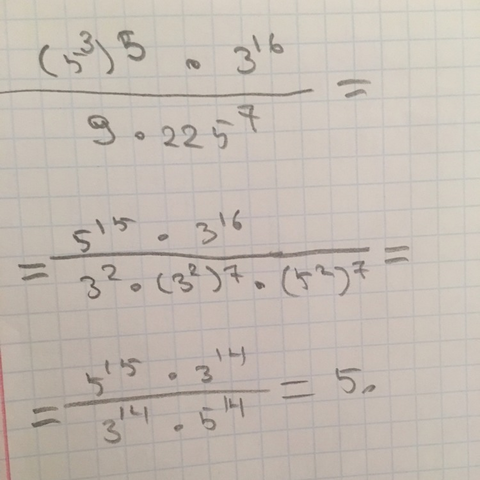 (5³)⁵ · 3¹⁶
9 · 225⁷ =
= 5¹⁵ · 3¹⁶
3² · (3²)⁷ · (5²)⁷ =
= 5¹⁵ · 3¹⁴
3¹⁴ · 5¹⁴ = 5.